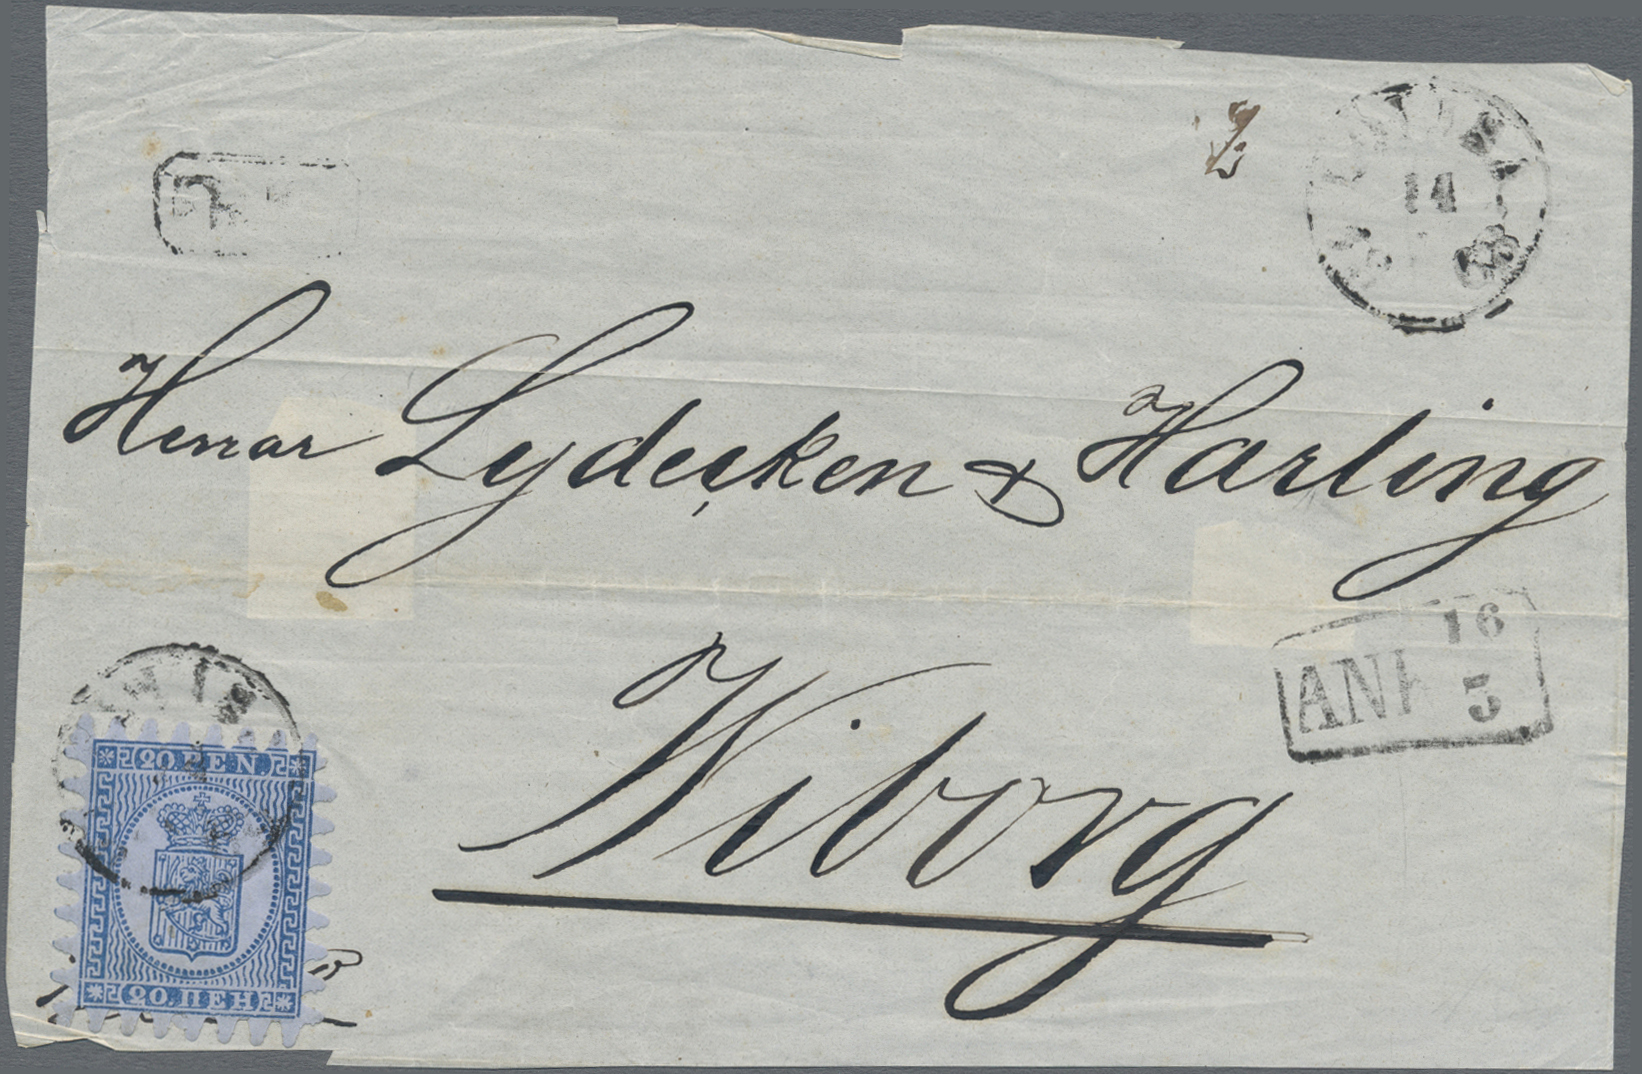 14
Herrar Lydecken & Harling
ANK 16
3
Wiborg
20.PEN.
20.ПЕН.